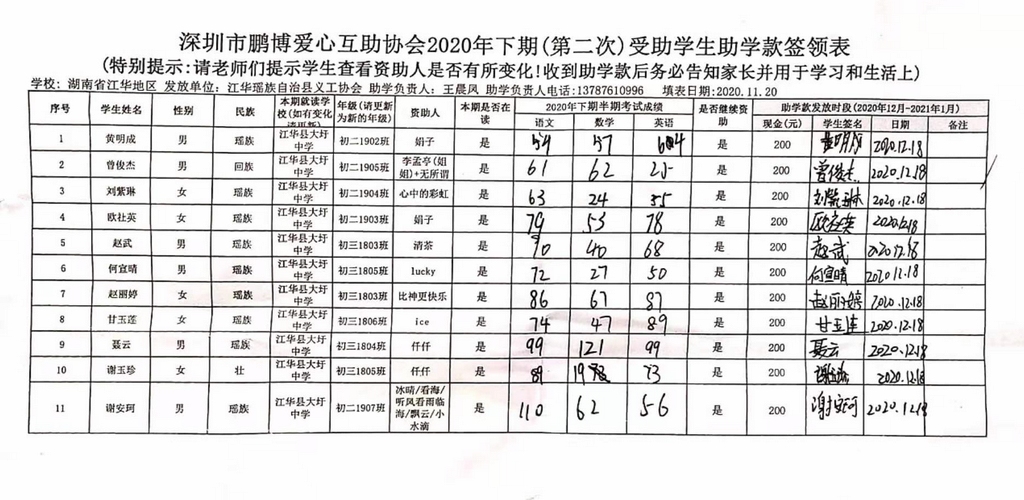 深圳市鹏博爱心互助协会2020年下期(第二次)受助学生助学款签领表
(特别提示:请老师们提示学生查看资助人是否有所变化!收到助学款后务必告知家长并用于学习和生活上)
学校: 湖南省江华地区 发放单位: 江华瑶族自治县义工协会 助学负责人: 王晨风 助学负责人电话:13787610996 填表日期:2020.11.20
序号 学生姓名 性别 民族 本期就读学校(如有变化请更新) 年级(请更新为新的年级) 资助人 本期是否在读 2020年下期半期考试成绩 是否继续资助 助学款发放时段(2020年12月-2021年1月)
语文 数学 英语 现金(元) 学生签名 日期 备注
1 黄明成 男 瑶族 江华县大圩中学 初二1902班 娟子 是 54 57 是 200 黄明成 2020.12.18
2 曾俊杰 男 回族 江华县大圩中学 初二1905班 李孟亭(姐姐)+无所谓 是 61 62 25 是 200 曾俊杰 2020.12.18
3 刘紫琳 女 瑶族 江华县大圩中学 初二1904班 心中的彩虹 是 63 24 55 是 200 刘紫琳 2020.12.18
4 欧社英 女 瑶族 江华县大圩中学 初二1903班 娟子 是 79 53 78 是 200 欧社英 2020.12.18
5 赵武 男 瑶族 江华县大圩中学 初三1803班 清茶 是 70 40 68 是 200 赵武 2020.12.18
6 何宜晴 男 瑶族 江华县大圩中学 初三1805班 lucky 是 72 27 50 是 200 何宜晴 2020.12.18
7 赵丽婷 女 瑶族 江华县大圩中学 初三1803班 比神更快乐 是 86 67 87 是 200 赵丽婷 2020.12.18
8 甘玉莲 女 瑶族 江华县大圩中学 初三1806班 ice 是 74 47 89 是 200 甘玉莲 2020.12.18
9 聂云 男 瑶族 江华县大圩中学 初三1804班 仟仟 是 99 121 99 是 200 聂云 2020.12.18
10 谢玉珍 女 壮 江华县大圩中学 初三1805班 仟仟 是 89 73 是 200 谢玉珍 2020.12.18
11 谢安珂 男 瑶族 江华县大圩中学 初二1907班 冰晴/看海/听风看雨临海/飘云/小水滴 是 110 62 56 是 200 谢安珂 2020.12.18